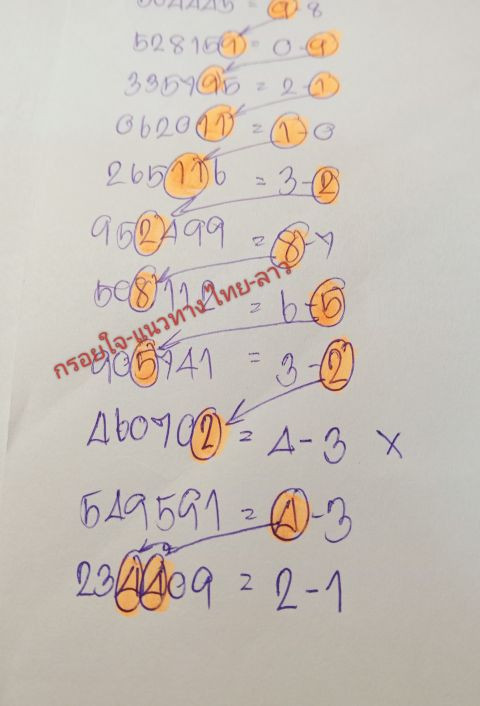 = 9-8
528159 = 0-9
335795 = 2-1
062011 = 1-0
265116 = 3-2
952499 = 8-7
= 6-5
กรอยใจ-แนวทาง ไทย-ลาว
905741 = 3-2
460702 = 4-3 X
549591 = 4-3
234409 = 2-1